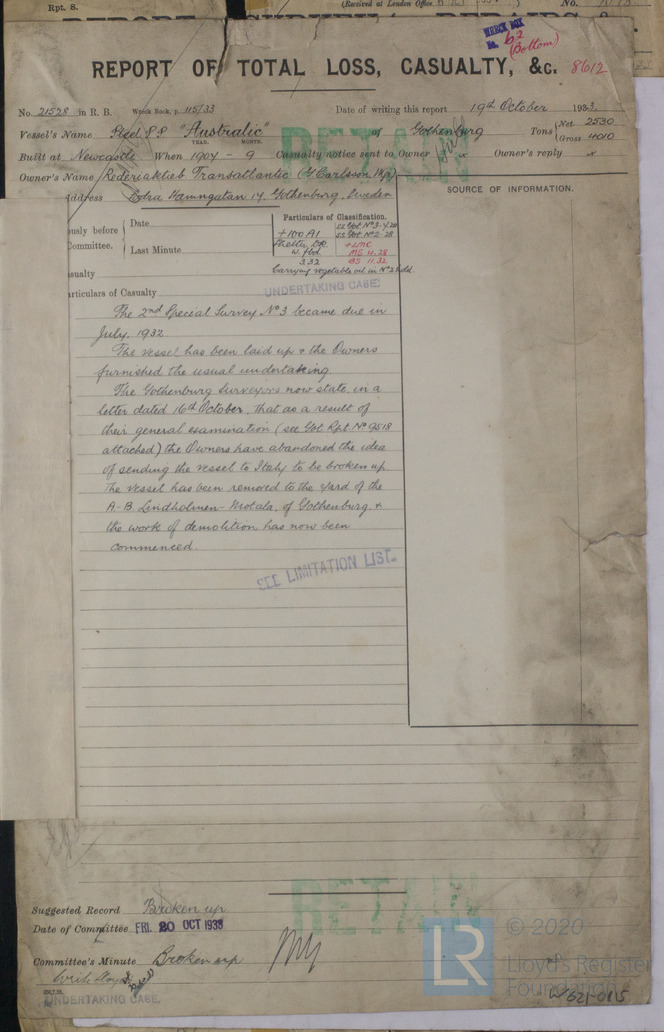 Rpt. 8.
(Received at London Office
No.
WRECK BOX
No. 62
(Bottom)
REPORT OF TOTAL LOSS, CASUALTY, &c. 8612
No. 21528 in R. B. Wreck Book, p. 115/33 Date of writing this report 19th October 1933.
Vessel's Name Steel S.S "Australic" of Gothenburg Tons Net 2530
Gross 4010
YEAR. MONTH.
Built at Newcastle When 1904 - 9 Casualty notice sent to Owner x Owner's reply x
Owner's Name Rederiaktieb Transatlantic (G Carlsson Mgr)
ddress Södra Hamngatan 14, Gothenburg, Sweden
SOURCE OF INFORMATION.
Particulars of Classification.
ously before
Committee.
Date
Last Minute
+100A1
Shelter Dk
w. fbd
3.32
SS Got. No 3-4.20
SS Got. No 2-28
+LMC
MS 4.28
BS 11.32
Carrying vegetable oil in No 2 hold
sualty
articulars of Casualty
UNDERTAKING CASE
The 2nd Special Survey No 3 became due in
July, 1932
The vessel has been laid up & the Owners
furnished the usual undertaking
The Gothenburg Surveyors now state, in a
letter dated 16th October, that as a result of
their general examination (see Got Rpt No 9518
attached) the Owners have abandoned the idea
of sending the vessel to Italy to be broken up
The vessel has been removed to the yard of the
A-B. Lindholmen-Motala, of Gothenburg &
the work of demolition has now been
commenced.
SEE LIMITATION LIST.
RETAIN
RETAIN
Suggested Record Broken up
Date of Committee FRI. 20 OCT 1933
Committee's Minute Broken up
UNDERTAKING CASE.
LR
© 2020
Lloyd's Register
Foundation
W621-0115